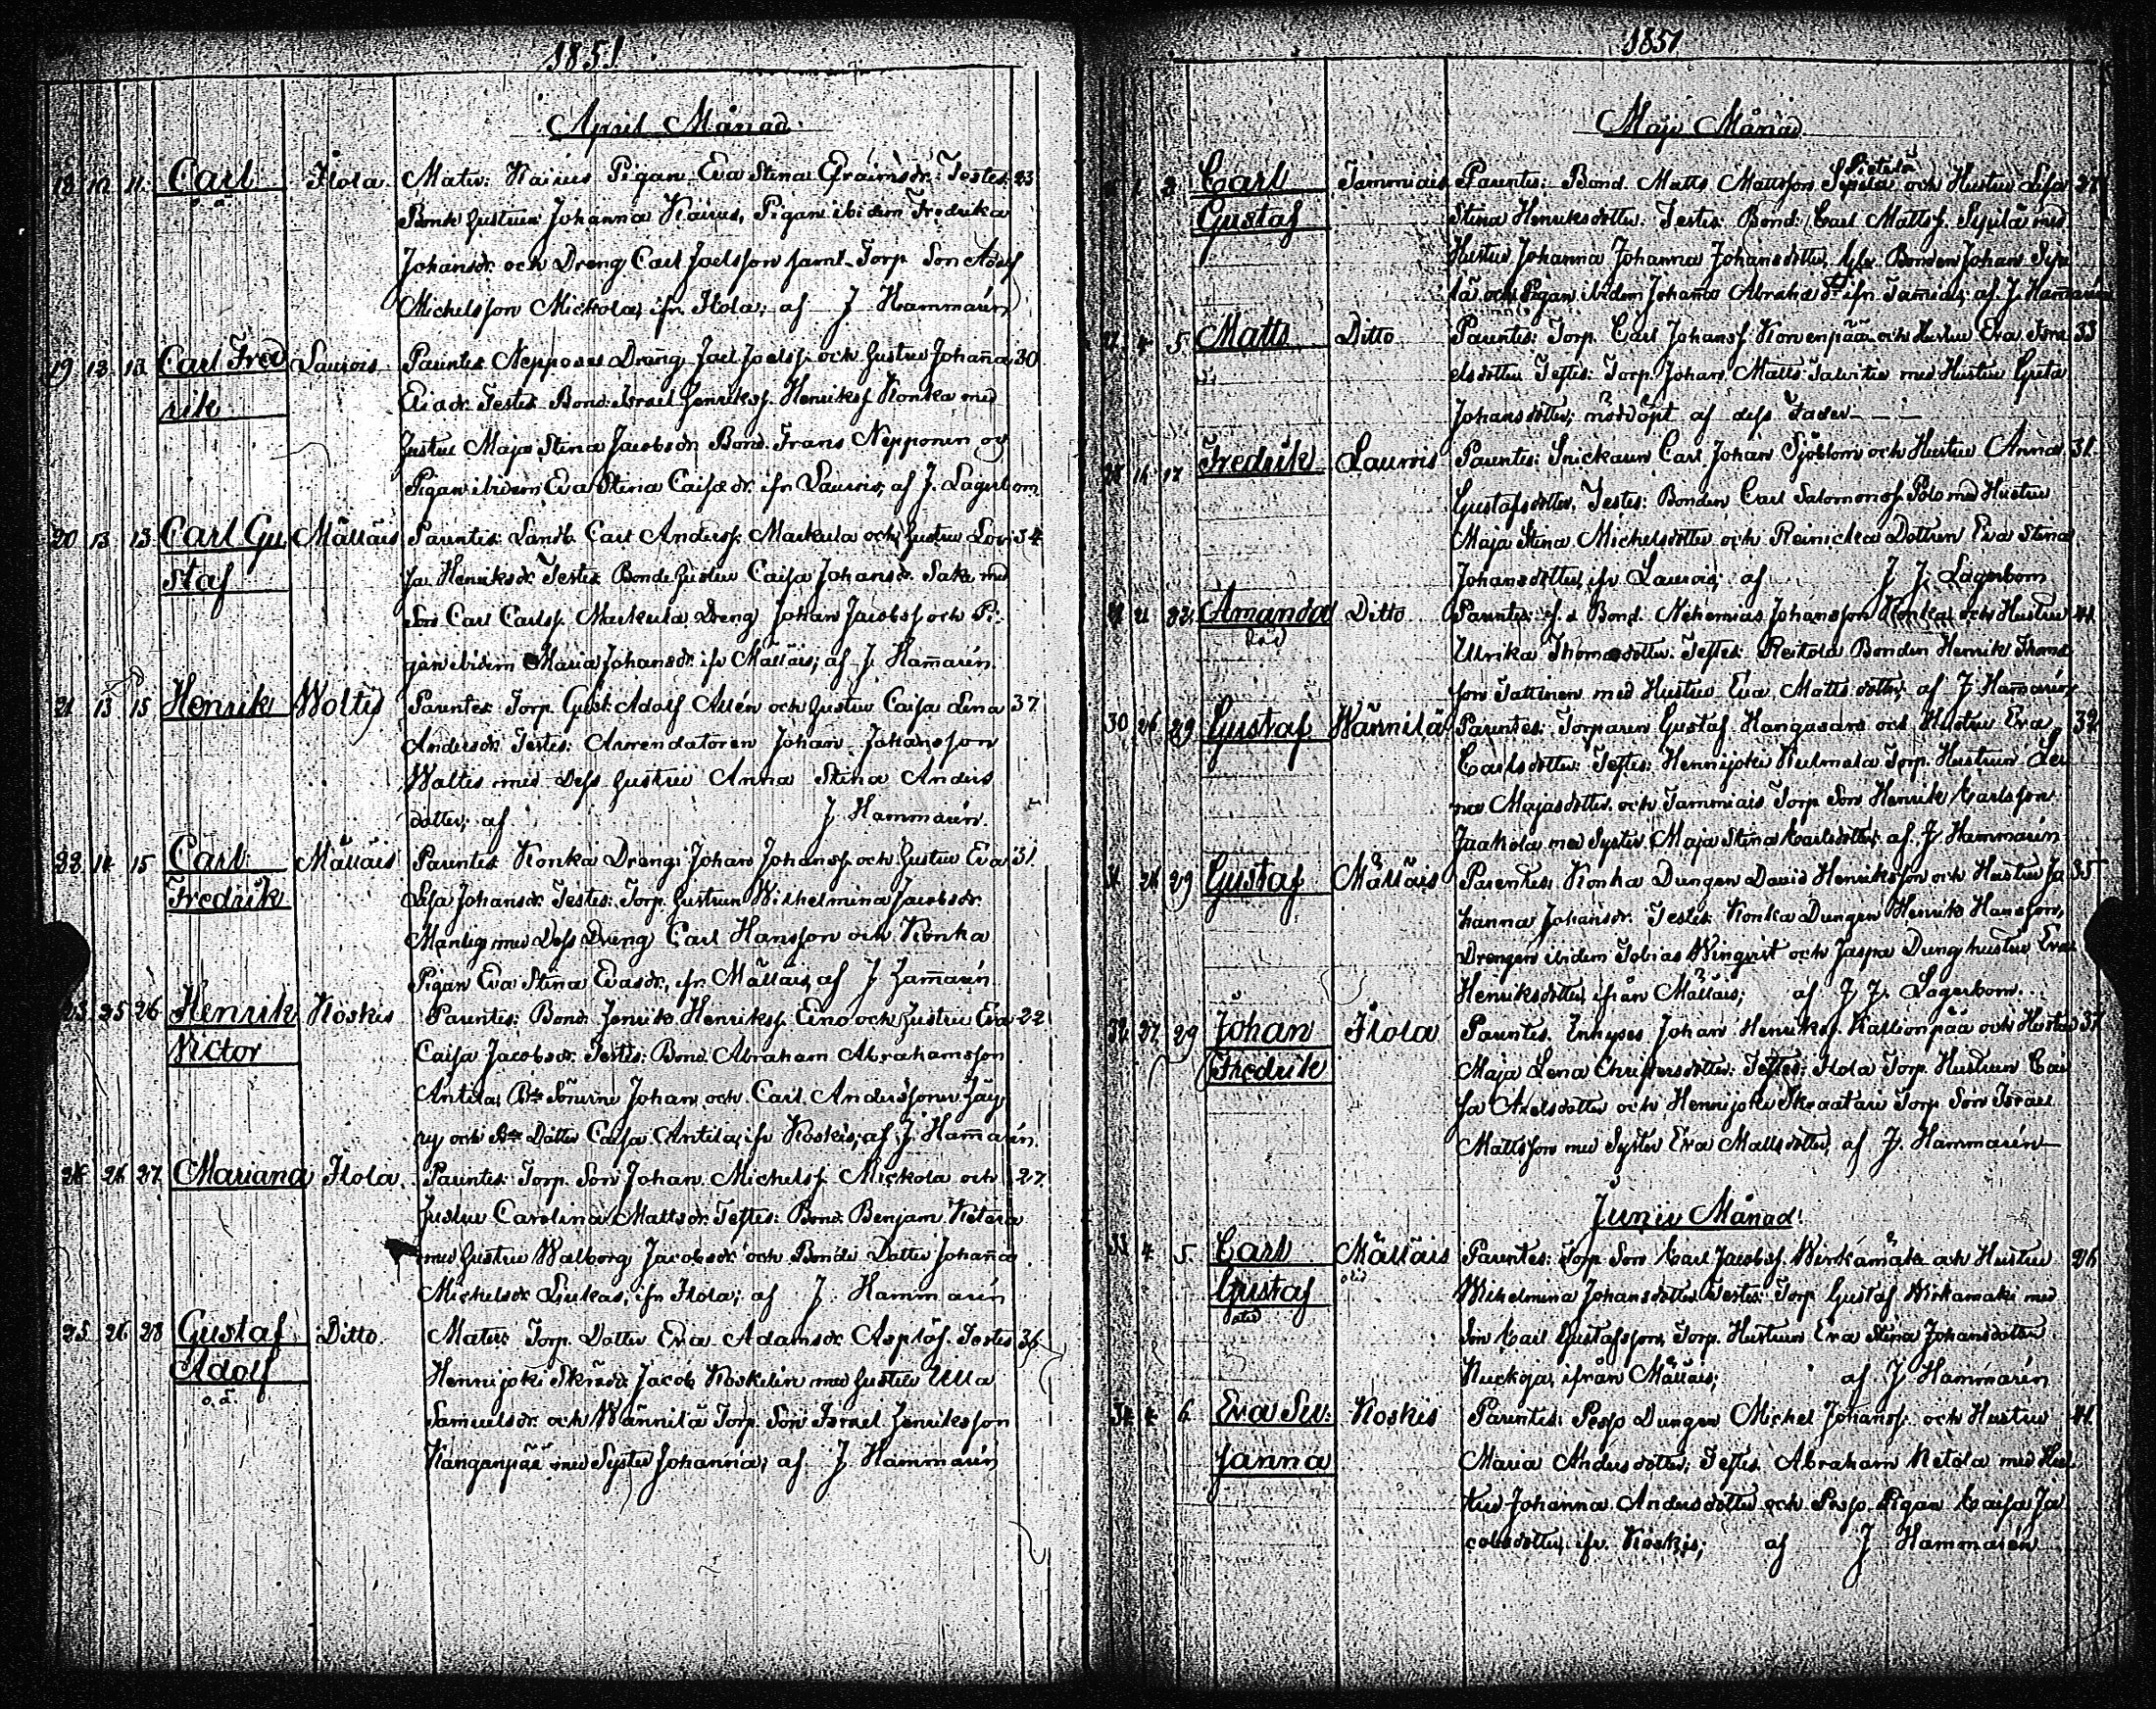 1851
April Månad
18 10 11. Carl Ilola. Mater: Kairus Pigan Eva Stina Efraimsdr. Testes 23
Bonde hustrun Johanna Kairus, Pigan ibidem Fredrika
Johansdr. och Dreng Carl Joelsson samt Torp. Son Adolf
Michelsson Mickola, ifr. Ilola; af J Hammarén
19 13 13 Carl Fred Laurois Parentes Nepposes Dräng Joel Joelss. och hustru Johanna 30
rik
dr. Testes Bond. Israel Henrikss. Henrikss Konka med
hustru Maja Stina Jacobsdr. Bond. Frans Nepponen og
Pigan ibidem Eva Stina Caisadr. ifr Laurois, af J. Lagerbom
20 13 13 Carl Gu Mälläis Parentes: Landb. Carl Anderss. Markula och hustru Lovi 34
staf
sa Henriksdr. Testes Bonde hustru Caisa Johansdr. Sake med
Son Carl Carlss. Markula Dreng Johan Jacobss och Pi-
gan ibidem Maria Johansdr. ifr Mälläis; af J. Hamarén.
21 13 15 Henrik Woltis Parentes Torp. Gust. Adolf Allén och hustru Caisa Lena 37
Andersdr. Testes: Arrendatoren Johan Johansson
Woltis med dess hustru Anna Stina Anders
dotter; af J Hammarén.
14 15 Carl Mälläis Parentes Konka Dreng Johan Johanss. och hustru Eva 31
Fredrik Lisa Johansdr. Testes: Torp. hustrun Wilhelmina Jacobsdr.
med dess Dreng Carl Hansson och Konka
Pigan Eva Stina Evasdr., ifr Mälläis, af J Hamarén
25 26 Henrik Koskis Parentes: Bond. Henrik Henrikss. Eino och hustru Eva 22
Victor Caisa Jacobsdr. Testes: Bond. Abraham Abrahamsson
Antila, Bde Sönerne Johan och Carl Anderssöner
ry och Bde Dotter Caisa Antila, ifr Koskis; af J. Hammarén.
26 27 Mariana Ilola. Parentes Torp. Son Johan Michelss. Mickola och 27
hustru Carolina Mattsdr. Testes: Bond. Benjam. Ketara
med hustru Walborg Jacobsdr. och Bonde Dotter Johanna
Michelsdr. Liukas, ifr Ilola; af J. Hammarén
25 26 28 Gustaf Ditto. Mater: Torp. Dotter Eva Adamsdr. Asplöf. Testes 36
Adolf Hennijoki Skrädd. Jacob Koskelin med hustru Ulla
o. ä. Samuelsdr. och Wännilä Torp. Son Israel Henriksson
Kanganpää med Syster Johanna; af J Hammarén
1851
Maji Månad
Carl Tammiais Parentes: Bond. Matts Mattsson Sypilä Pietilä och Hustru Lisa 27
Gustaf Stina Henriksdotter. Testes: Bond. Carl Mattss. Sypilä med
Hustru Johanna Johanna Johansdotter, Bonden Johan Sypi
lä och Pigan ibidem Johanna Abrahadr. ifr. Tamiais; af J. Hammarén
4 5 Matts Ditto Parentes: Torp. Carl Johanss. Korvenpää och Hustru Eva Isra 33
elsdotter Testes: Torp. Johan Matts Talvitie med Hustru Greta
Johansdotter; nöddöpt af dess Fader
16 17 Fredrik Laurois Parentes: Snickaren Carl Johan Sjöblom och Hustru Anna 31
Gustafsdotter, Testes: Bonden Carl Salomonss. Polo med Hustru
Maja Stina Michelsdotter och Reinicka Dottren Eva Stina
Johansdotter, ifr Laurois; af J J. Lagerbom
21 22 Amanda Ditto Parentes: f. d. Bond. Nehemias Johansson Konka och Hustru 41
död Ulrika Thomasdotter. Testes: Reitola Bonden Henrik Thoma
sson Tattinen med Hustru Eva Mattsdotter; af J Hammarén
30 26 29 Gustaf Wännilä Parentes: Torparen Gustaf Hangasars och Hustru Eva 32
Carlsdotter: Testes: Hennijoki Torp. Hustrun Le
na Majasdotter och Tammiais Torp. Son Henrik Carlsson
Jaakola med Syster Maja Stina Carlsdotter; af J Hammarén
26 29 Gustaf Mälläis Parentes: Konka Drengen David Henriksson och Hustru Jo 35
hanna Johansdr. Testes Konka Drengen Henrik Hansson,
Drengen ibidem Tobias Winqvist och Jaspa Dreng hustru Eva
Henriksdotter, ifrån Mälläis; af J J. Lagerbom.
32 27 29 Johan Ilola Parentes. Inhyses Johan Henrikss. Kallionpää och Hustru 37
Fredrik Maja Lena Christersdotter: Testes: Ilola Torp. Hustrun Cai
sa Axelsdotter och Hennijoki Skraatari Torp. Son Israel
Mattsson med Syster Eva Mattsdotter, af J. Hammarén
Junii Månad
33 4 5. Carl Mälläis Parentes: Torp. Son Carl Jacobss. Wirkamäki och Hustru 26
Gustaf Wilhelmina Johansdotter Testes: Torp Gustaf Wirkamäki med
Son Carl Gustafsson, Torp. Hustrun Eva Stina Johansdotter
Kuckoja, ifrån Mälläis; af J Hammarén
34 4 6 Eva Su: Koskis Parentes: Peso Drengen Michel Johanss. och Hustru 41
sanna Maria Andersdotter; Testes. Abraham Ketola med Hus
tru Johanna Andersdotter och Peso Pigan Caisa Ja
cobsdotter, ifr. Koskis; af J Hammarén